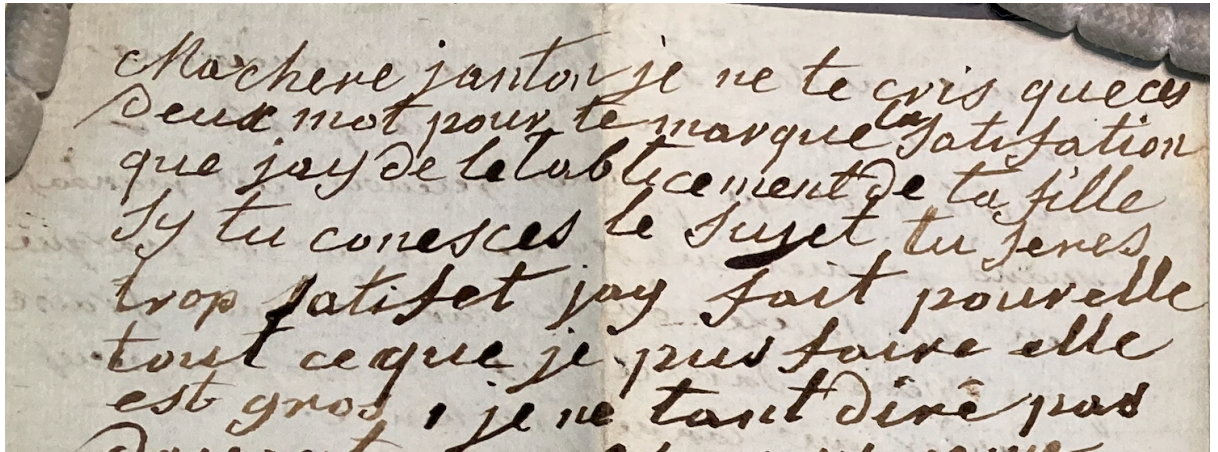 Ma chere janton je ne te cris que ces
deux mot pour te marque la satisfation
que jay de letablicement de ta fille
sy tu conesces le sujet tu seres
trop satifet jay fait pour elle
tout ce que je pus faire elle
est gros, je ne tant diré pas